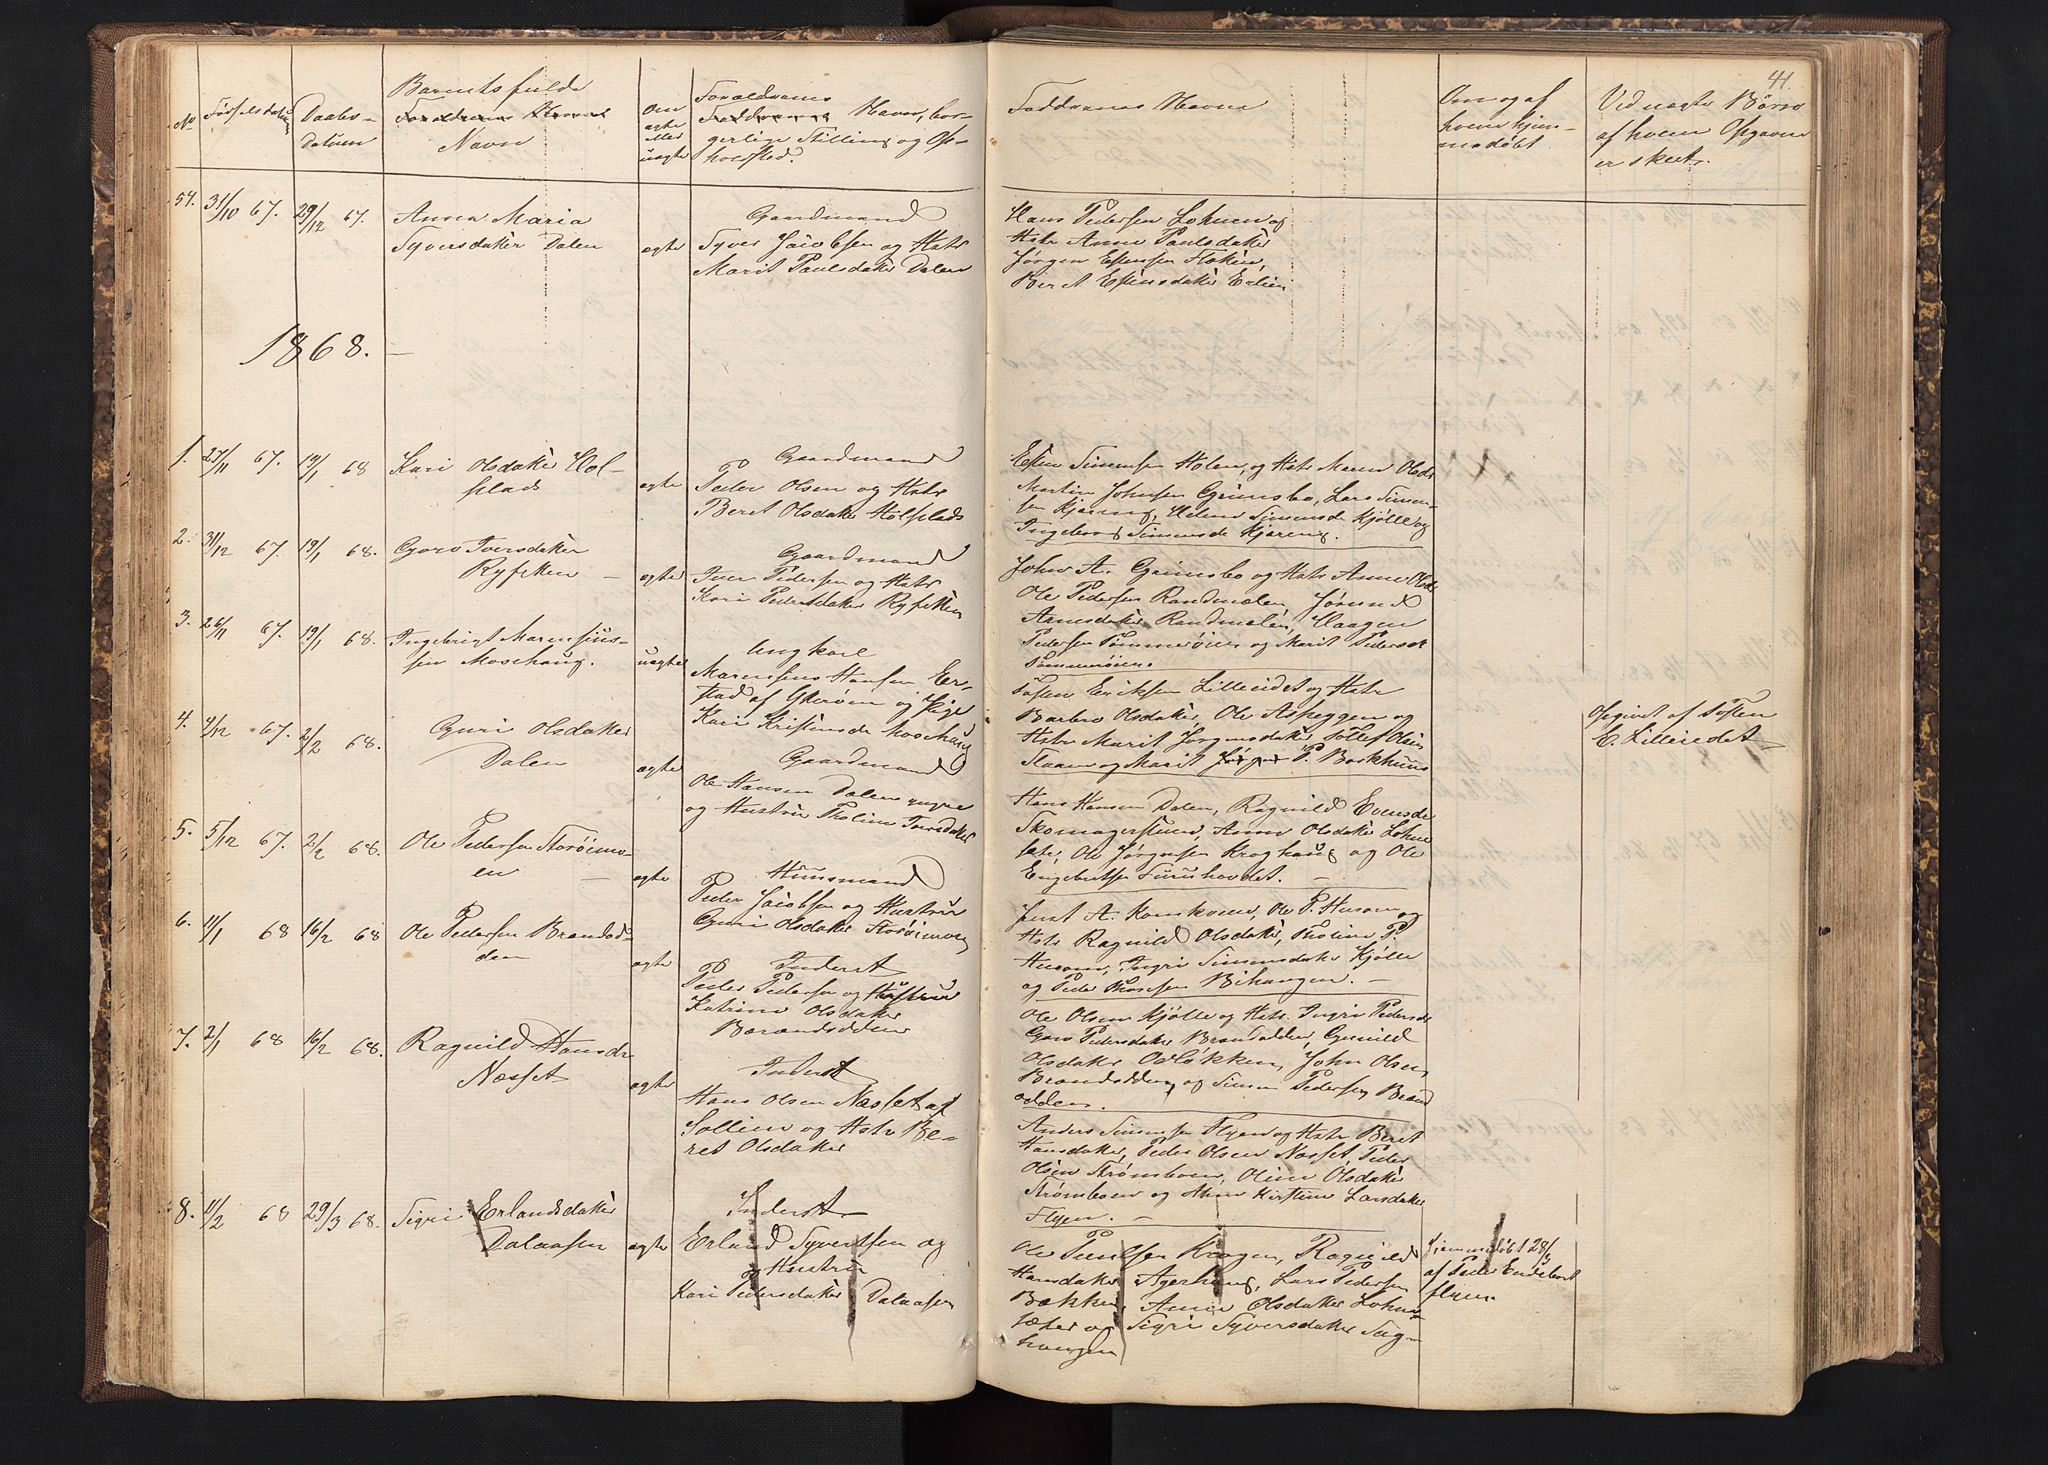 41
No
Fødselsdatum
Daabs-
datum
Barnets fulde
Forældrenes Navne
Navn
Om
ægte
eller
uægte
Forældrenes
Faddrenes Navne, bor-
gerlige Stilling og Op-
holdsted.
Faddrenes Navne
Om og af
hvem hjem-
medøbt
Ved uægte Børn
af hvem Opgaven
er skeet.
54. 31/10 67. 29/12 67. Anna Maria
Syversdatter Dalen
ægte
Gaardmand
Syver Jacobsen og Hstr
Marit Paulsdatter Dalen
Hans Pedersen Lohnen og
Hstr Anne Paulsdatter
Jørgen Estensen Floken,
Beret Estensdatter Erlien
1868.
1. 27/11 67. 19/1 68 Kari Olsdatter Hol-
plads
ægte
Gaardmand
Peder Olsen og Hstr
Beret Olsdatter Holplads
Esten Simensen Holen, og Hstr Maren Olsdr
Martin Johnsen Grimsbo, Lars Simen-
sen Kjøreng, Helene Simensdr Kjølle og
Ingeborg Simensdr Kjøreng.
2. 31/12 67. 19/1 68. Goro Iversdatter
Ryfetten
ægte
Gaardmand
Iver Pedersen og Hstr
Kari Pedersdatter Ryfetten
John A. Grimsbo og Hstr Anne Olsdr
Ole Pedersen Randmælen, Jørund
Arnesdatter Randmælen, Haagen
Pedersen Tømmerøien og Marit Pedersdr
Tømmerøien.
3. 26/11 67. 19/1 68. Ingebrigt Marensius-
sen Moschaug.
uægte
Ungkarl
Marensius Hansen Er-
stad af og Pige
Kari Kristensdr Moschaug
Tosten Eriksen Lilleeidet og Hstr
Barbro Olsdatter, Ole Aspeggen og
Hstr Marit Jørgensdatter, Tollef Olsen
Floen og Marit P. Borkhuus
Opgivet af Tosten
E. Lilleeidet
4. 9/12 67. 2/2 68. Guri Olsdatter
Dalen
ægte
Gaardmand
Ole Hansen Dalen yngre
og Hustru Tholine Iversdatter
Hans Hansen Dalen, Ragnild Evensdr
Skomagerstuen, Anne Olsdatter Lohne
sæter, Ole Jørgensen Kroghaug og Ole
Engebretsen Furuhovdet.
5. 5/12 67. 2/2 68. Ole Pedersen Storøimo-
en
ægte
Huusmand
Peder Jacobsen og Hustru
Guri Olsdatter Storøimoen
Just A. Konskoven, Ole P. Husom og
Hstr Ragnild Olsdatter, Tholine P.
Husom, Ingri Simensdatter Kjølle
og Peder Thoresen Bihaugen.
6. 11/1 68 16/2 68 Ole Pedersen Brandod-
den
ægte
Inderst
Peder Pedersen og Hustru
Katrine Olsdatter
Brandodden
Ole Olsen Kjølle og Hstr. Ingri Pedersdr
Goro Pedersdatter Brandodden, Gunild
Olsdatter Odløkken, John Olsen
Brandodden, og Simen Pedersen Brand
odden.
7. 2/1 68 16/2 68. Ragnild Hansdr
Næsset
ægte
Inderst
Hans Olsen Næsset af
Sollien og Hstr Be-
ret Olsdatter
Anders Simensen Flyen og Hstr Beret
Hansdatter, Peder Olsen Næsset, Peder
Olsen Strømboen, Oline Olsdatter
Strømboen og Anne Kirstine Larsdatter
Flyen.
8. 11/2 68 29/3 68. Sigri Erlandsdatter
Dalaasen
ægte
Inderst
Erland Syvertsen og
Hustru
Kari Pedersdatter Dalaasen
Ole Paulsen Krogen, Ragnild
Hansdatter Agerhaug, Lars Pedersen
Bækken, Anne Olsdatter Lohne
sæter og Sigri Syversdatter Tag-
haugen
Hjemmedøbt 28/3
af Peder Endebert
Flyen.